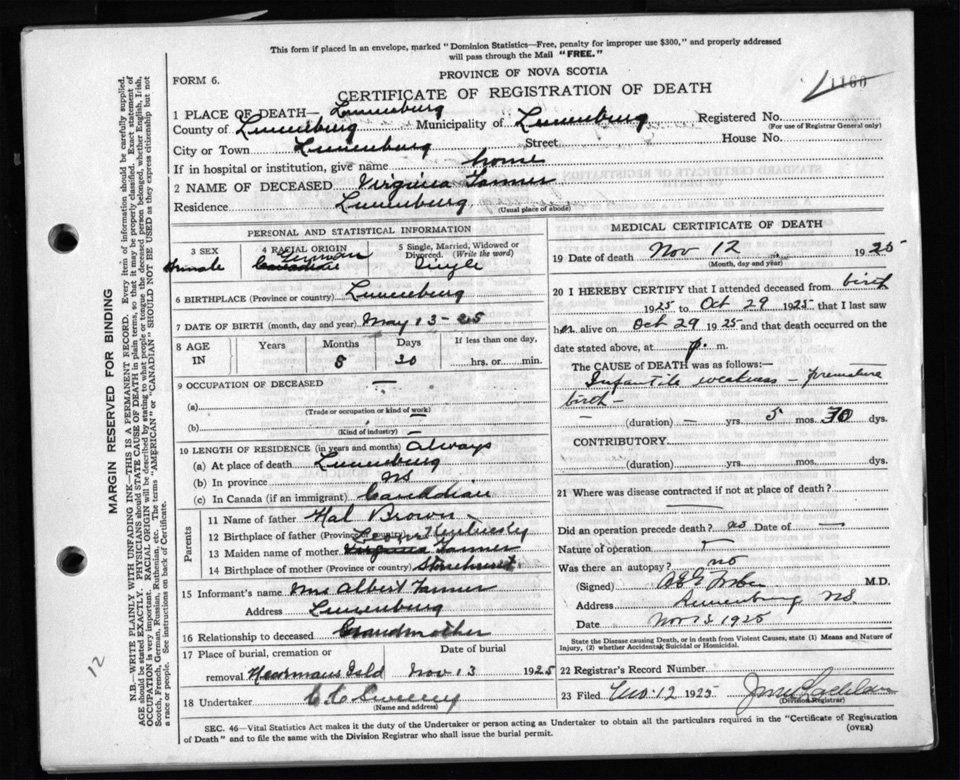 This form if placed in an envelope, marked "Dominion Statistics—Free, penalty for improper use $300," and properly addressed
will pass through the Mail "FREE."
PROVINCE OF NOVA SCOTIA
FORM 6.
1160
CERTIFICATE OF REGISTRATION OF DEATH
1 PLACE OF DEATH— Lunenburg
County of Lunenburg Municipality of Lunenburg Registered No.
(For use of Registrar General only)
City or Town Lunenburg Street House No.
If in hospital or institution, give name home
2 NAME OF DECEASED Virginia Tanner
Residence Lunenburg
(Usual place of abode)
PERSONAL AND STATISTICAL INFORMATION
3 SEX 4 RACIAL ORIGIN 5 Single, Married, Widowed or
Divorced. (Write the word)
German
Female Canadian Single
6 BIRTHPLACE (Province or country) Lunenburg
7 DATE OF BIRTH (month, day and year) May 13-25
8 AGE IN Years Months Days If less than one day,
5 30 hrs. or min.
9 OCCUPATION OF DECEASED —
(a)
(Trade or occupation or kind of work)
(b) —
(Kind of industry)
10 LENGTH OF RESIDENCE (in years and months) Always
(a) At place of death Lunenburg
(b) In province NS
(c) In Canada (if an immigrant) Canadian
Parents
11 Name of father Hal Brown
12 Birthplace of father (Province or country)
13 Maiden name of mother Virginia Tanner
14 Birthplace of mother (Province or country) Stonehurst
15 Informant's name Mrs Albert Tanner
Address Lunenburg
16 Relationship to deceased Grandmother
17 Place of burial, cremation or Date of burial
removal Nov 13 1925
18 Undertaker
(Name and address)
MEDICAL CERTIFICATE OF DEATH
19 Date of death Nov 12 1925
(Month, day and year)
20 I HEREBY CERTIFY that I attended deceased from birth
1925 to Oct 29 1925 that I last saw
her alive on Oct 29 1925 and that death occurred on the
date stated above, at p. m.
The CAUSE of DEATH was as follows:—
Infantile weakness — premature
birth —
— (duration) — yrs 5 mos 30 dys.
CONTRIBUTORY
(duration) yrs mos dys.
21 Where was disease contracted if not at place of death?
Did an operation precede death? no Date of —
Nature of operation
Was there an autopsy? no
(Signed) M.D.
Address Lunenburg NS
Date Nov 13 1925
State the Disease causing Death, or in death from Violent Causes, state (1) Means and Nature of
Injury, (2) whether Accidental, Suicidal or Homicidal.
22 Registrar's Record Number
23 Filed 12 1925
(Division Registrar)
SEC. 46—Vital Statistics Act makes it the duty of the Undertaker or person acting as Undertaker to obtain all the particulars required in the "Certificate of Registration
of Death" and to file the same with the Division Registrar who shall issue the burial permit. (OVER)
MARGIN RESERVED FOR BINDING
N.B.—WRITE PLAINLY WITH UNFADING INK—THIS IS A PERMANENT RECORD. Every item of information should be carefully supplied.
AGE should be stated EXACTLY. PHYSICIANS should STATE CAUSE OF DEATH in plain terms, so that it may be properly classified. Exact statement of
OCCUPATION is very important. RACIAL ORIGIN will be described by stating to what people or tongue the deceased person belonged, whether English, Irish,
Scotch, French, German, Russian, Ruthenian, etc. The terms "AMERICAN" or "CANADIAN" SHOULD NOT BE USED as they express citizenship but not
a race or people. See instructions on back of Certificate.
12